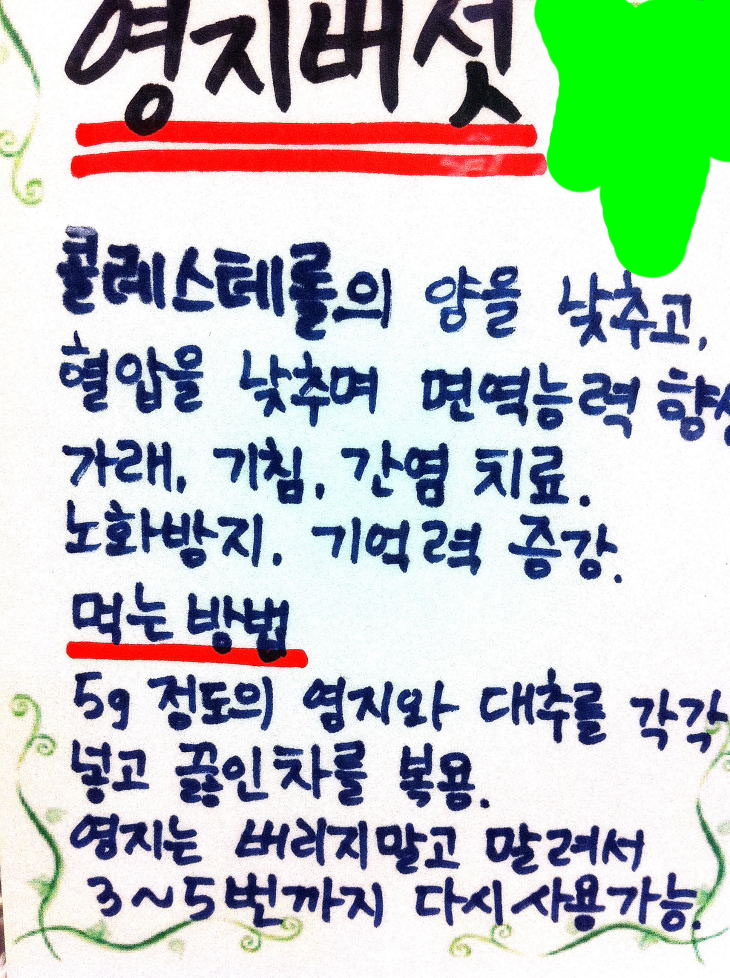 영지버섯
콜레스테롤의 양을 낮추고,
혈압을 낮추며 면역능력 향상
가래, 기침, 간염 치료.
노화방지, 기억력 증강.
먹는 방법
5g 정도의 영지와 대추를 각각
넣고 끓인차를 복용.
영지는 버리지말고 말려서
3~5번까지 다시사용가능.